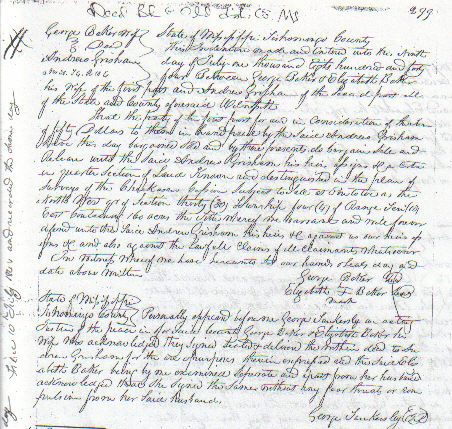 Deed Bk G Old Tish. Co MS
299
George Baker Wife
To Deed
Andrew Grisham
State of Mississippi Tishomingo County
This Indenture made and Entered into the Ninth
day of July one thousand Eight hundred and forty
four Between George Baker & Elizabeth Baker
his Wife of the first part and Andrew Grisham of the Second part all
of the State and County aforesaid Witnesseth
That the party of the first part for and in Consideration of the Sum
of fifty Dollars to them in hand paid by the Said Andrew Grisham
have this day bargained Sold and by these presents do bargain Sell and
Release unto the Said Andrew Grisham his heirs
a quarter Section of Land Known and distinguished in the plan of
Surveys of the Chickasaw Cession Subject to Sale at Pontotoc as the
North West qr of Section thirty (30) Township four (4) of Range Ten (10)
East Containing 160 acres the Title Whereof we Warrant and will forever
defend unto the Said Andrew Grisham his heirs &c against us our heirs
&c and also against the Lawful Claims of all Claimants Whatsoever
In Witness Whereof we have hereunto set our hands & Seals day and
date above Written
George Baker
Elizabeth Baker
mark
State of Mississippi
Tishomingo County
Personally appeared before me George Tankersley an acting
Justice of the peace in & for Said County George Baker & Elizabeth Baker his
Wife Who acknowledged they Signed Sealed & deliverd the Within deed to An
drew Grisham for the purposes therein expressed and the Said Eliz
abeth Baker being by me examined Separate and apart from her husband
acknowledged that She Signed the Same without any fear threat or Com
pulsion from her Said husband.
George Tankersley